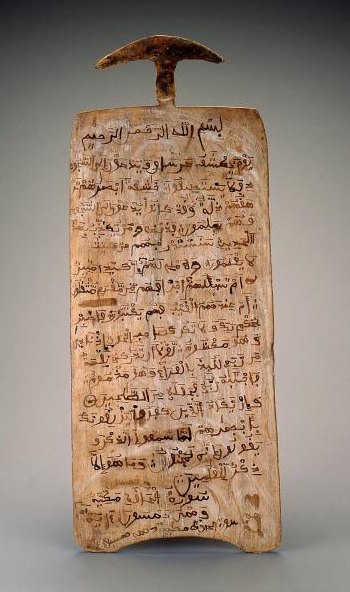 بسم الله الرحمن الرحيم
يوم يكشف عن ساق ويدعون إلى السجود
فلا يستطيعون خشعة أبصرهم
ترهقهم ذلة وقد كانوا يدعون إلى السجود
وهم سلمون فذرني ومن يكذب بهذا
الحديث سنستدرجهم من حيث
لا يعلمون وأملي لهم إن كيدي متين
أم تسئلهم أجرا فهم من مغرم مثقلون
أم عندهم الغيب فهم يكتبون فاصبر
لحكم ربك ولا تكن كصاحب الحوت إذ نادى
وهو مكظوم لولا أن تدركه نعمة
من ربه لنبذ بالعراء وهو مذموم
فاجتبه ربه فجعله من الصلحين
وإن يكاد الذين كفروا ليزلقونك
بأبصرهم لما سمعوا الذكر و
يقولون إنه لمجنون وما هو إلا
ذكر للعلمين
سورة الحاقة مكية